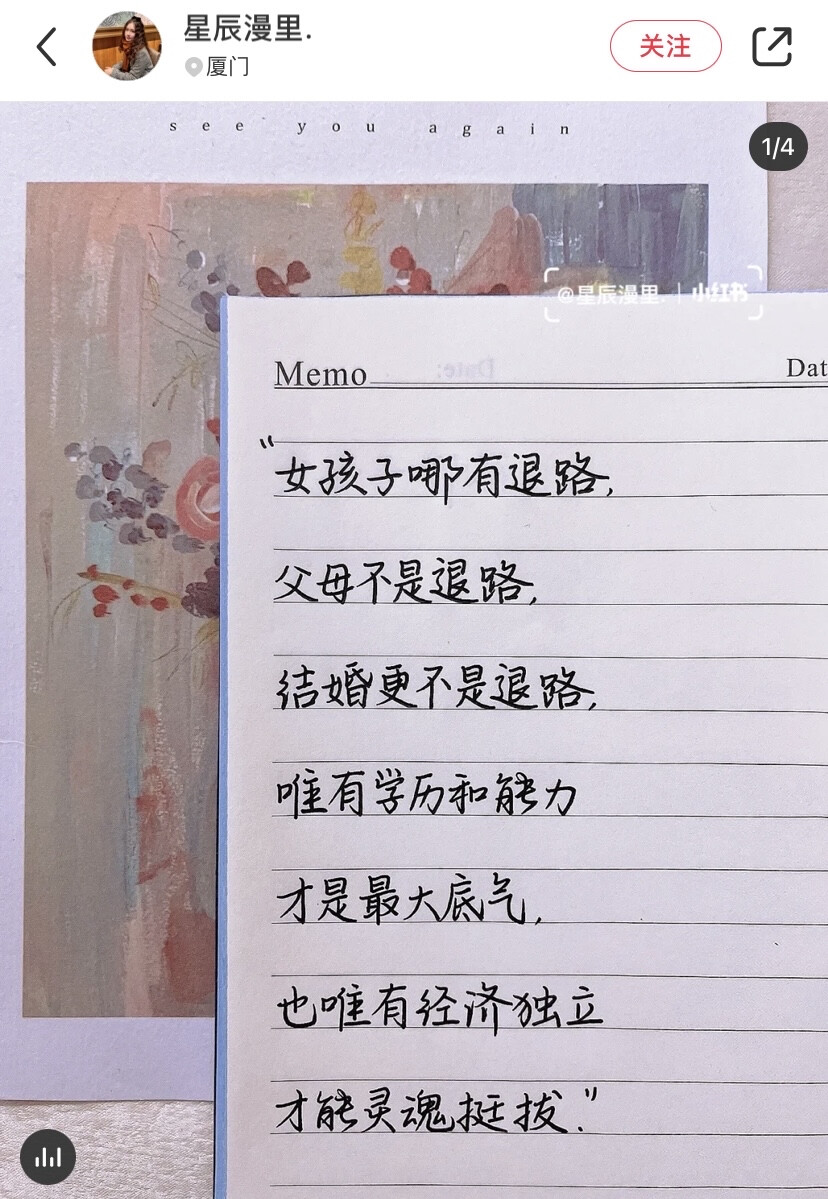 星辰漫里.
厦门
关注
see you again
1/4
@星辰漫里. | 小红书
Memo
Date:
Dat
“女孩子哪有退路,
父母不是退路,
结婚更不是退路,
唯有学历和能力
才是最大底气,
也唯有经济独立
才能灵魂挺拔.”